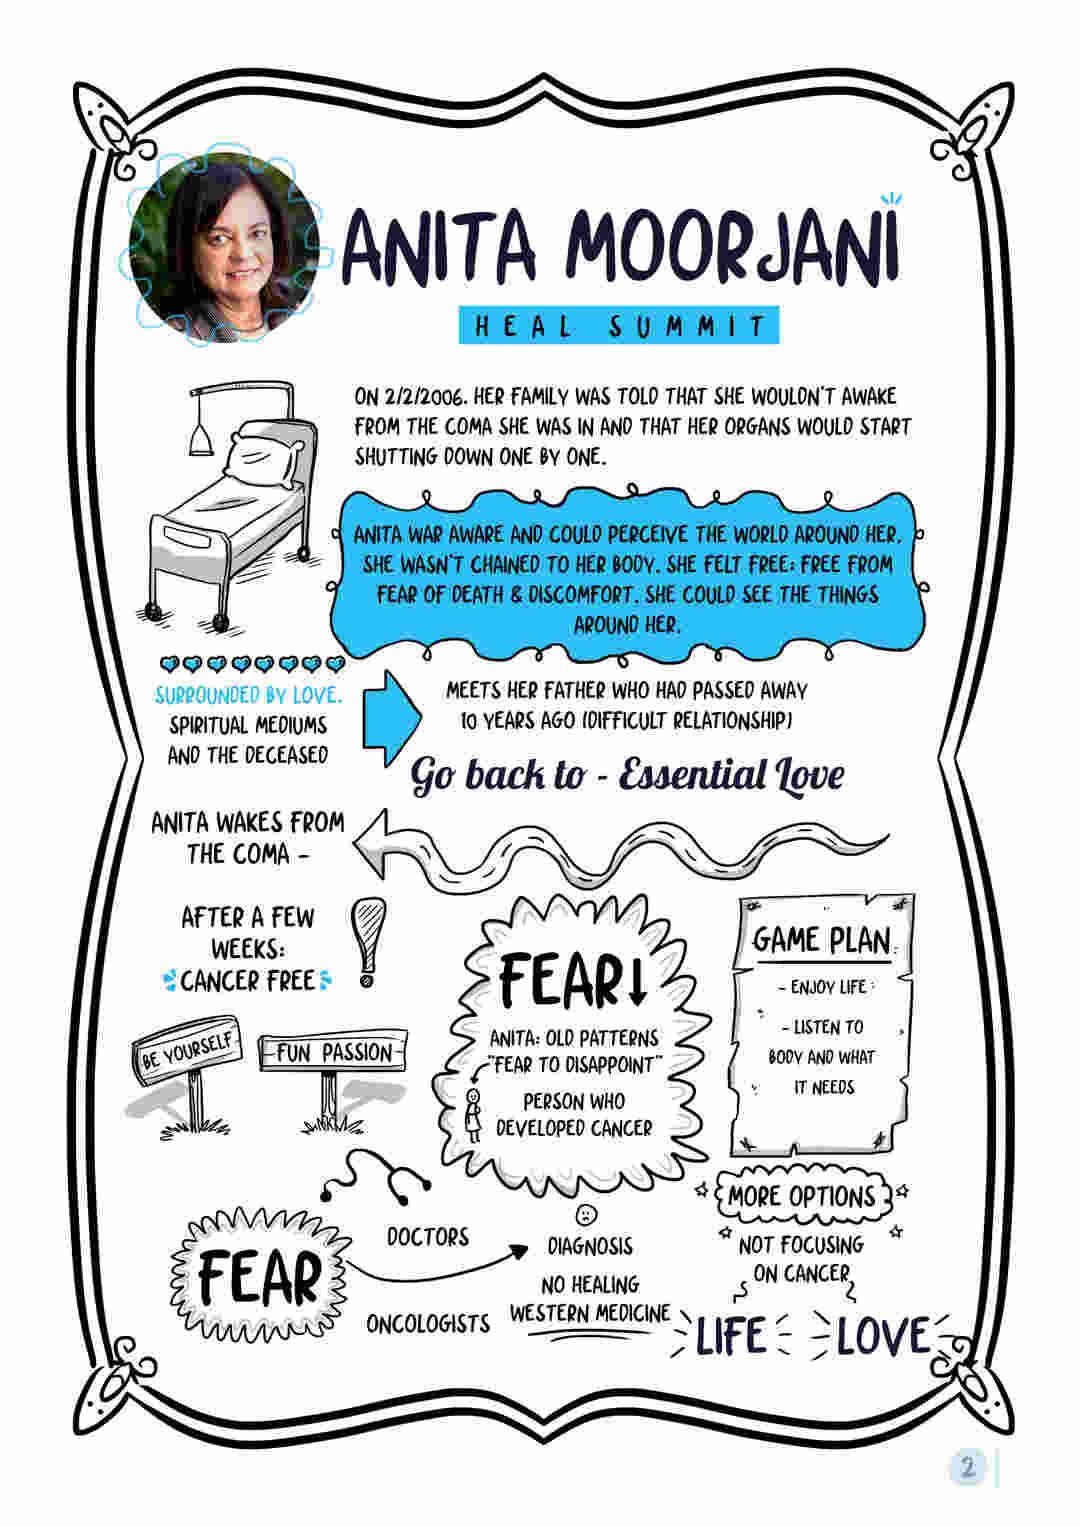 ANITA MOORJANI
HEAL SUMMIT
ON 2/2/2006. HER FAMILY WAS TOLD THAT SHE WOULDN'T AWAKE
FROM THE COMA SHE WAS IN AND THAT HER ORGANS WOULD START
SHUTTING DOWN ONE BY ONE.
ANITA WAR AWARE AND COULD PERCEIVE THE WORLD AROUND HER.
SHE WASN'T CHAINED TO HER BODY. SHE FELT FREE: FREE FROM
FEAR OF DEATH & DISCOMFORT. SHE COULD SEE THE THINGS
AROUND HER.
SURROUNDED BY LOVE.
SPIRITUAL MEDIUMS
AND THE DECEASED
MEETS HER FATHER WHO HAD PASSED AWAY
10 YEARS AGO (DIFFICULT RELATIONSHIP)
Go back to - Essential Love
ANITA WAKES FROM
THE COMA -
AFTER A FEW
WEEKS:
CANCER FREE
BE YOURSELF
FUN PASSION
FEAR
ANITA: OLD PATTERNS
"FEAR TO DISAPPOINT"
PERSON WHO
DEVELOPED CANCER
GAME PLAN
- ENJOY LIFE
- LISTEN TO
BODY AND WHAT
IT NEEDS
MORE OPTIONS
NOT FOCUSING
ON CANCER
LIFE
LOVE
FEAR
DOCTORS
ONCOLOGISTS
DIAGNOSIS
NO HEALING
WESTERN MEDICINE
2